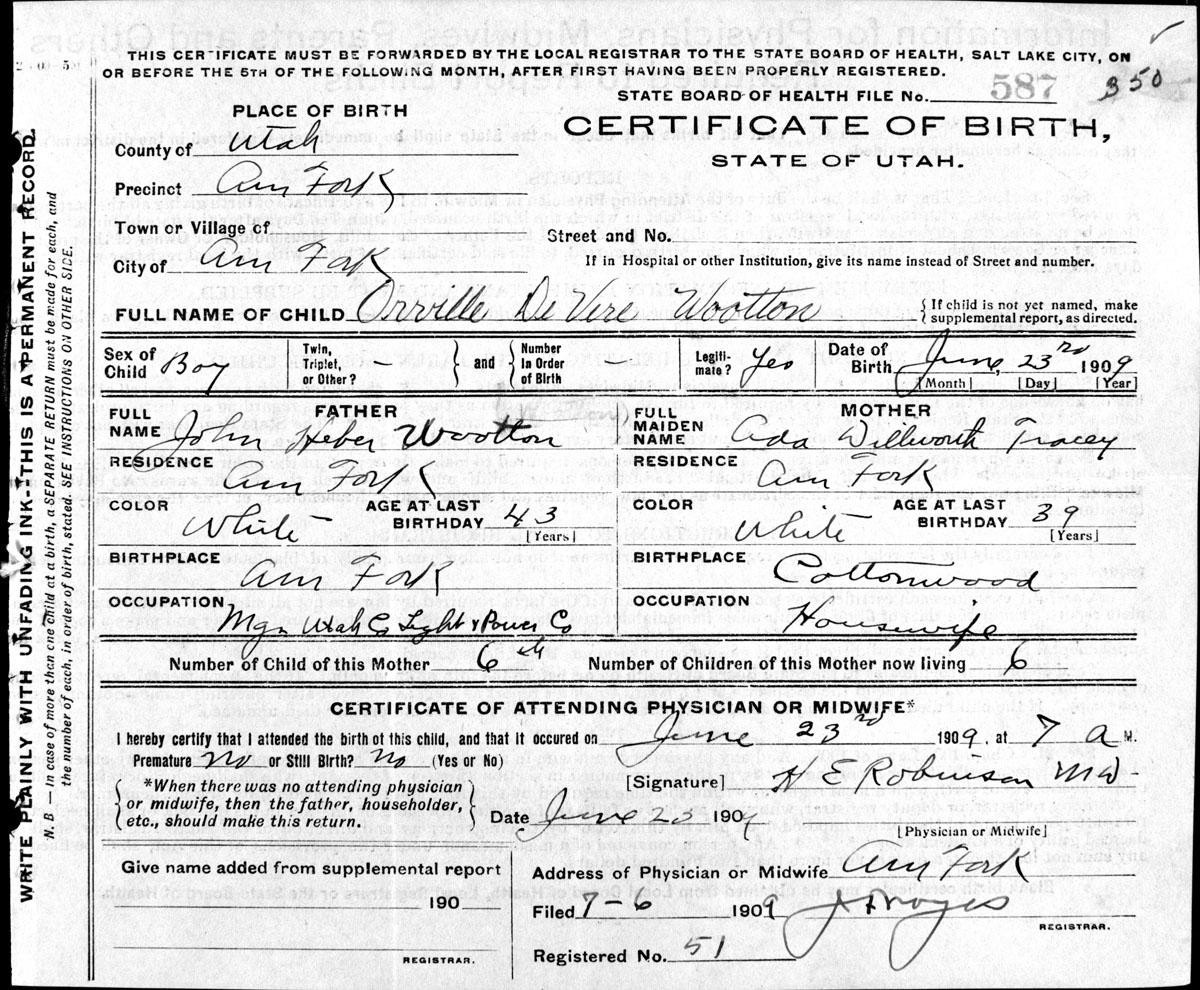 THIS CERTIFICATE MUST BE FORWARDED BY THE LOCAL REGISTRAR TO THE STATE BOARD OF HEALTH, SALT LAKE CITY, ON
OR BEFORE THE 5TH OF THE FOLLOWING MONTH, AFTER FIRST HAVING BEEN PROPERLY REGISTERED.
350
STATE BOARD OF HEALTH FILE No. 587
PLACE OF BIRTH
CERTIFICATE OF BIRTH,
STATE OF UTAH.
County of Utah
Precinct Am Fork
Town or Village of
Street and No.
City of Am Fork
If in Hospital or other Institution, give its name instead of Street and number.
FULL NAME OF CHILD Orville De Vere Wootton
{ If child is not yet named, make
supplemental report, as directed.
Sex of Child Boy
Twin, Triplet, or Other? -
} and {
Number in Order of Birth
Legiti-mate? Yes
Date of Birth June, 23rd 1909
[Month] [Day] [Year]
FATHER
FULL NAME John Heber Wootton
RESIDENCE Am Fork
COLOR White
AGE AT LAST BIRTHDAY 43
[Years]
BIRTHPLACE Am Fork
OCCUPATION Mgr Utah Co Light & Power Co
MOTHER
FULL MAIDEN NAME Ada Dillworth Tracey
RESIDENCE Am Fork
COLOR White
AGE AT LAST BIRTHDAY 39
[Years]
BIRTHPLACE Cottonwood
OCCUPATION Housewife
Number of Child of this Mother 6th Number of Children of this Mother now living 6
CERTIFICATE OF ATTENDING PHYSICIAN OR MIDWIFE*
I hereby certify that I attended the birth of this child, and that it occured on June 23rd 1909. at 7 A M.
Premature No or Still Birth? No (Yes or No)
[Signature] H E Robinson MD-
{ *When there was no attending physician
or midwife, then the father, householder,
etc., should make this return. }
Date June 23 1909
[Physician or Midwife]
Give name added from supplemental report
190
REGISTRAR.
Address of Physician or Midwife Am Fork
Filed 7-6 1909
REGISTRAR.
Registered No. 51
WRITE PLAINLY WITH UNFADING INK-THIS IS A PERMANENT RECORD.
N. B. — In case of more than one child at a birth, a SEPARATE RETURN must be made for each, and
the number of each, in order of birth, stated. SEE INSTRUCTIONS ON OTHER SIDE.